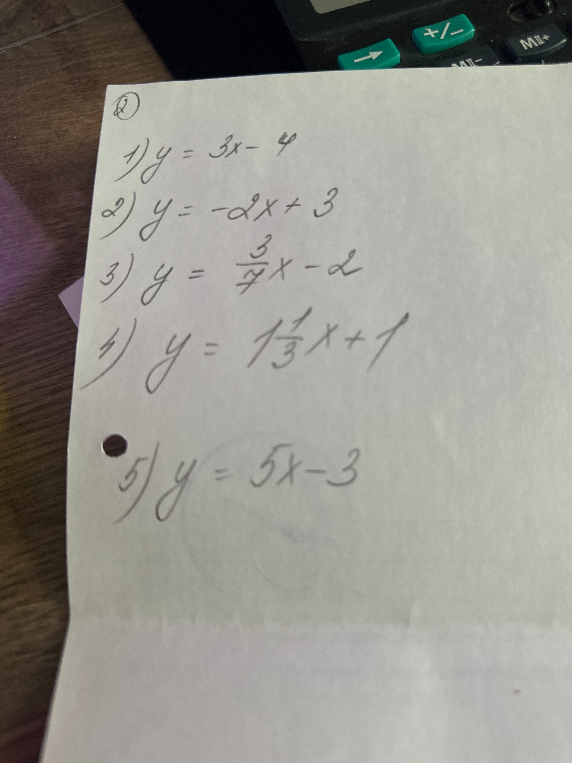 → +/- MII- MII+
②
1) y = 3x - 4
2) y = -2x + 3
3) y = 3/7 x - 2
4) y = 1 1/3 x + 1
5) y = 5x - 3